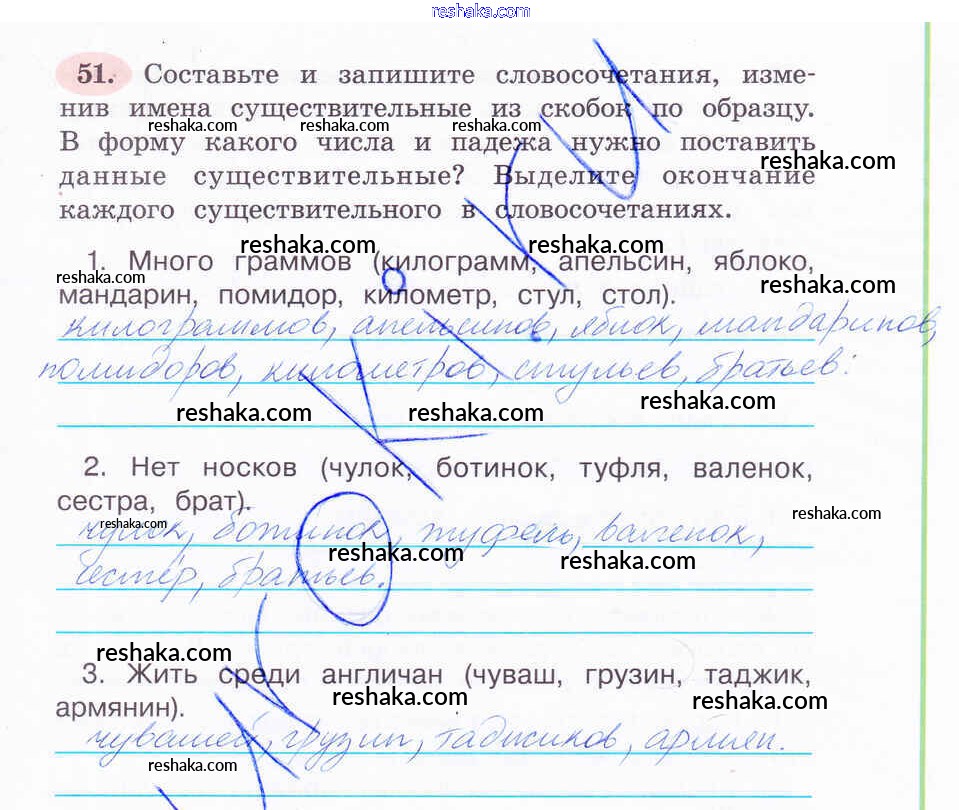 reshaka.com
51. Составьте и запишите словосочетания, изме-
нив имена существительные из скобок по образцу.
reshaka.com reshaka.com reshaka.com
В форму какого числа и падежа нужно поставить
reshaka.com
данные существительные? Выделите окончание
каждого существительного в словосочетаниях.
reshaka.com reshaka.com
1. Много граммов (килограмм, апельсин, яблоко,
reshaka.com reshaka.com
мандарин, помидор, километр, стул, стол).
килограммов, апельсинов, яблок, мандаринов,
помидоров, километров, стульев, братьев.
reshaka.com reshaka.com reshaka.com
2. Нет носков (чулок, ботинок, туфля, валенок,
сестра, брат).
reshaka.com reshaka.com
чулок, ботинок, туфель, валенок,
reshaka.com reshaka.com
сестёр, братьев.
reshaka.com
3. Жить среди англичан (чуваш, грузин, таджик,
reshaka.com reshaka.com
армянин).
чувашей, грузин, таджиков, армян.
reshaka.com